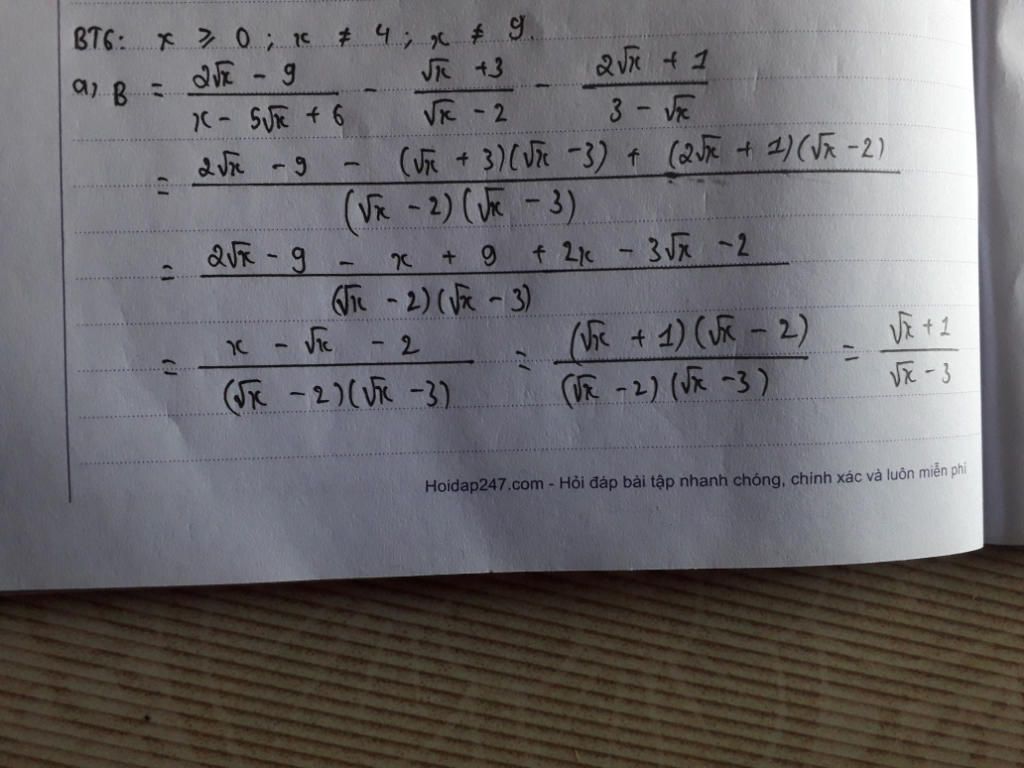 BT6: x ⩾ 0 ; x ≠ 4 ; x ≠ 9.
a, B = (2√x - 9)/(x - 5√x + 6) - (√x + 3)/(√x - 2) - (2√x + 1)/(3 - √x)
= (2√x - 9 - (√x + 3)(√x - 3) + (2√x + 1)(√x - 2))/((√x - 2)(√x - 3))
= (2√x - 9 - x + 9 + 2x - 3√x - 2)/((√x - 2)(√x - 3))
= (x - √x - 2)/((√x - 2)(√x - 3)) = ((√x + 1)(√x - 2))/((√x - 2)(√x - 3)) = (√x + 1)/(√x - 3)
Hoidap247.com - Hỏi đáp bài tập nhanh chóng, chính xác và luôn miễn phí